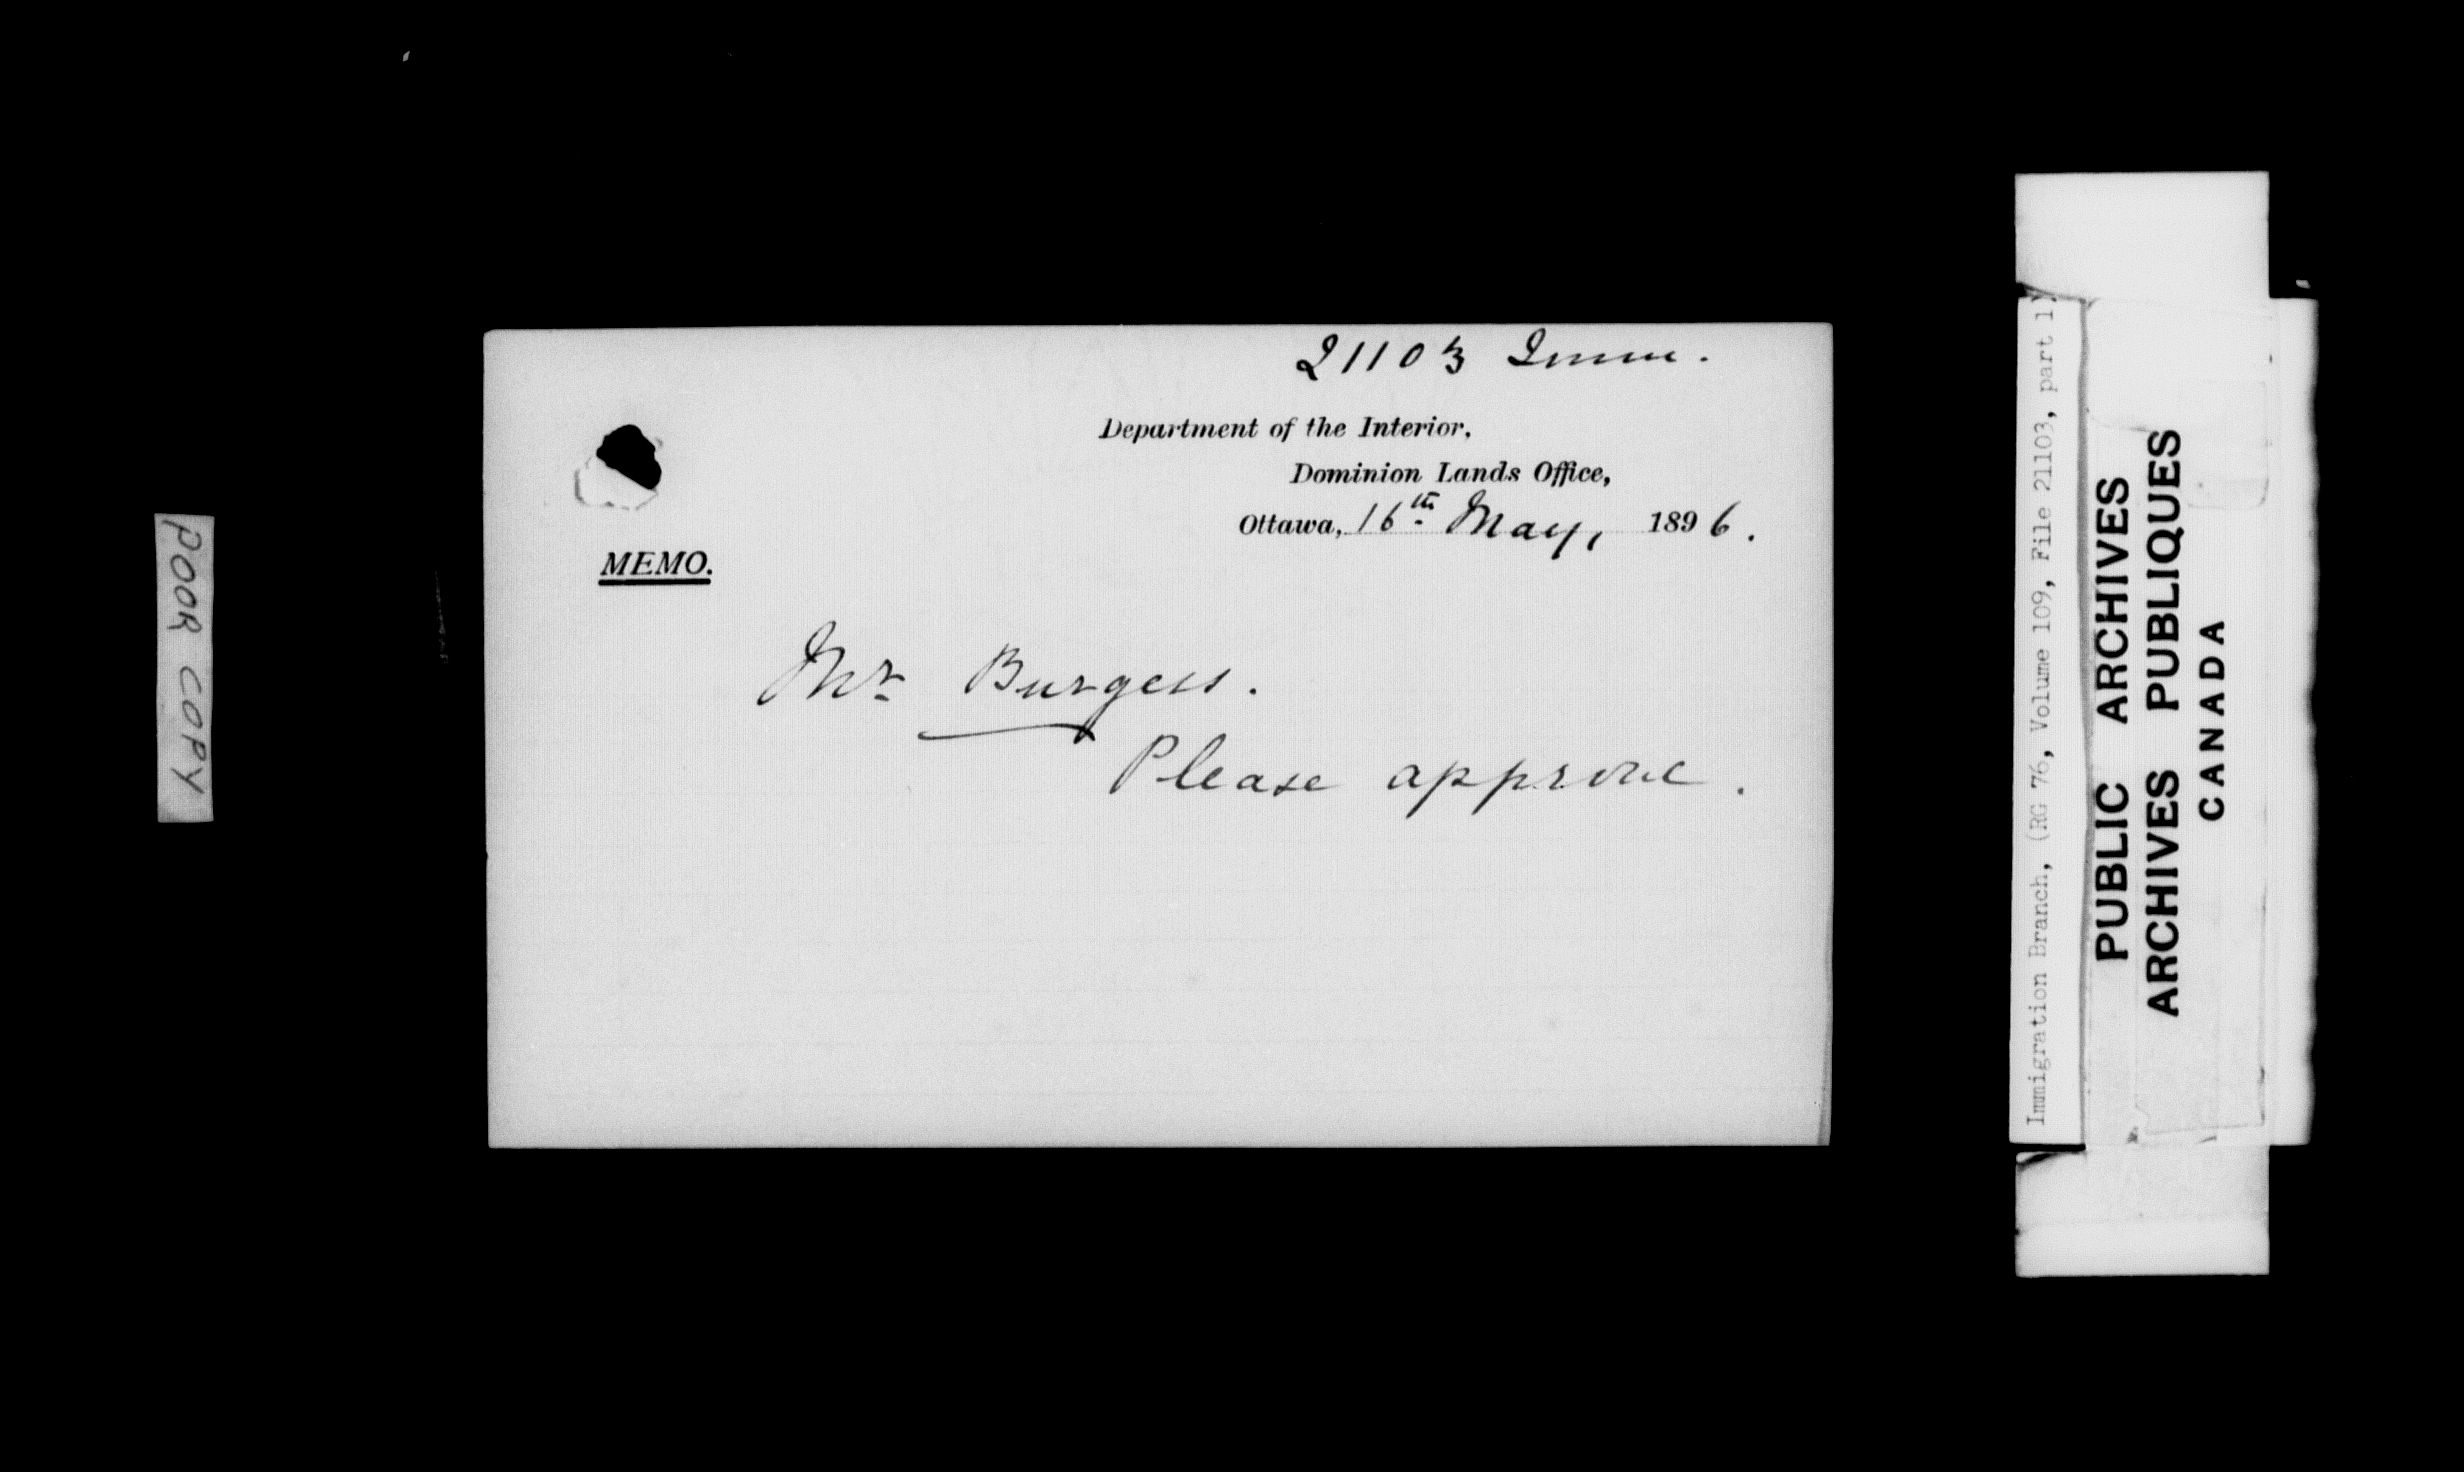 POOR COPY
21103 Imm.
Department of the Interior,
Dominion Lands Office,
Ottawa, 16th May, 1896.
MEMO.
Mr Burgess.
Please approve.
Immigration Branch, (RG 76, Volume 109, File 21103, part 1)
PUBLIC ARCHIVES
ARCHIVES PUBLIQUES
CANADA